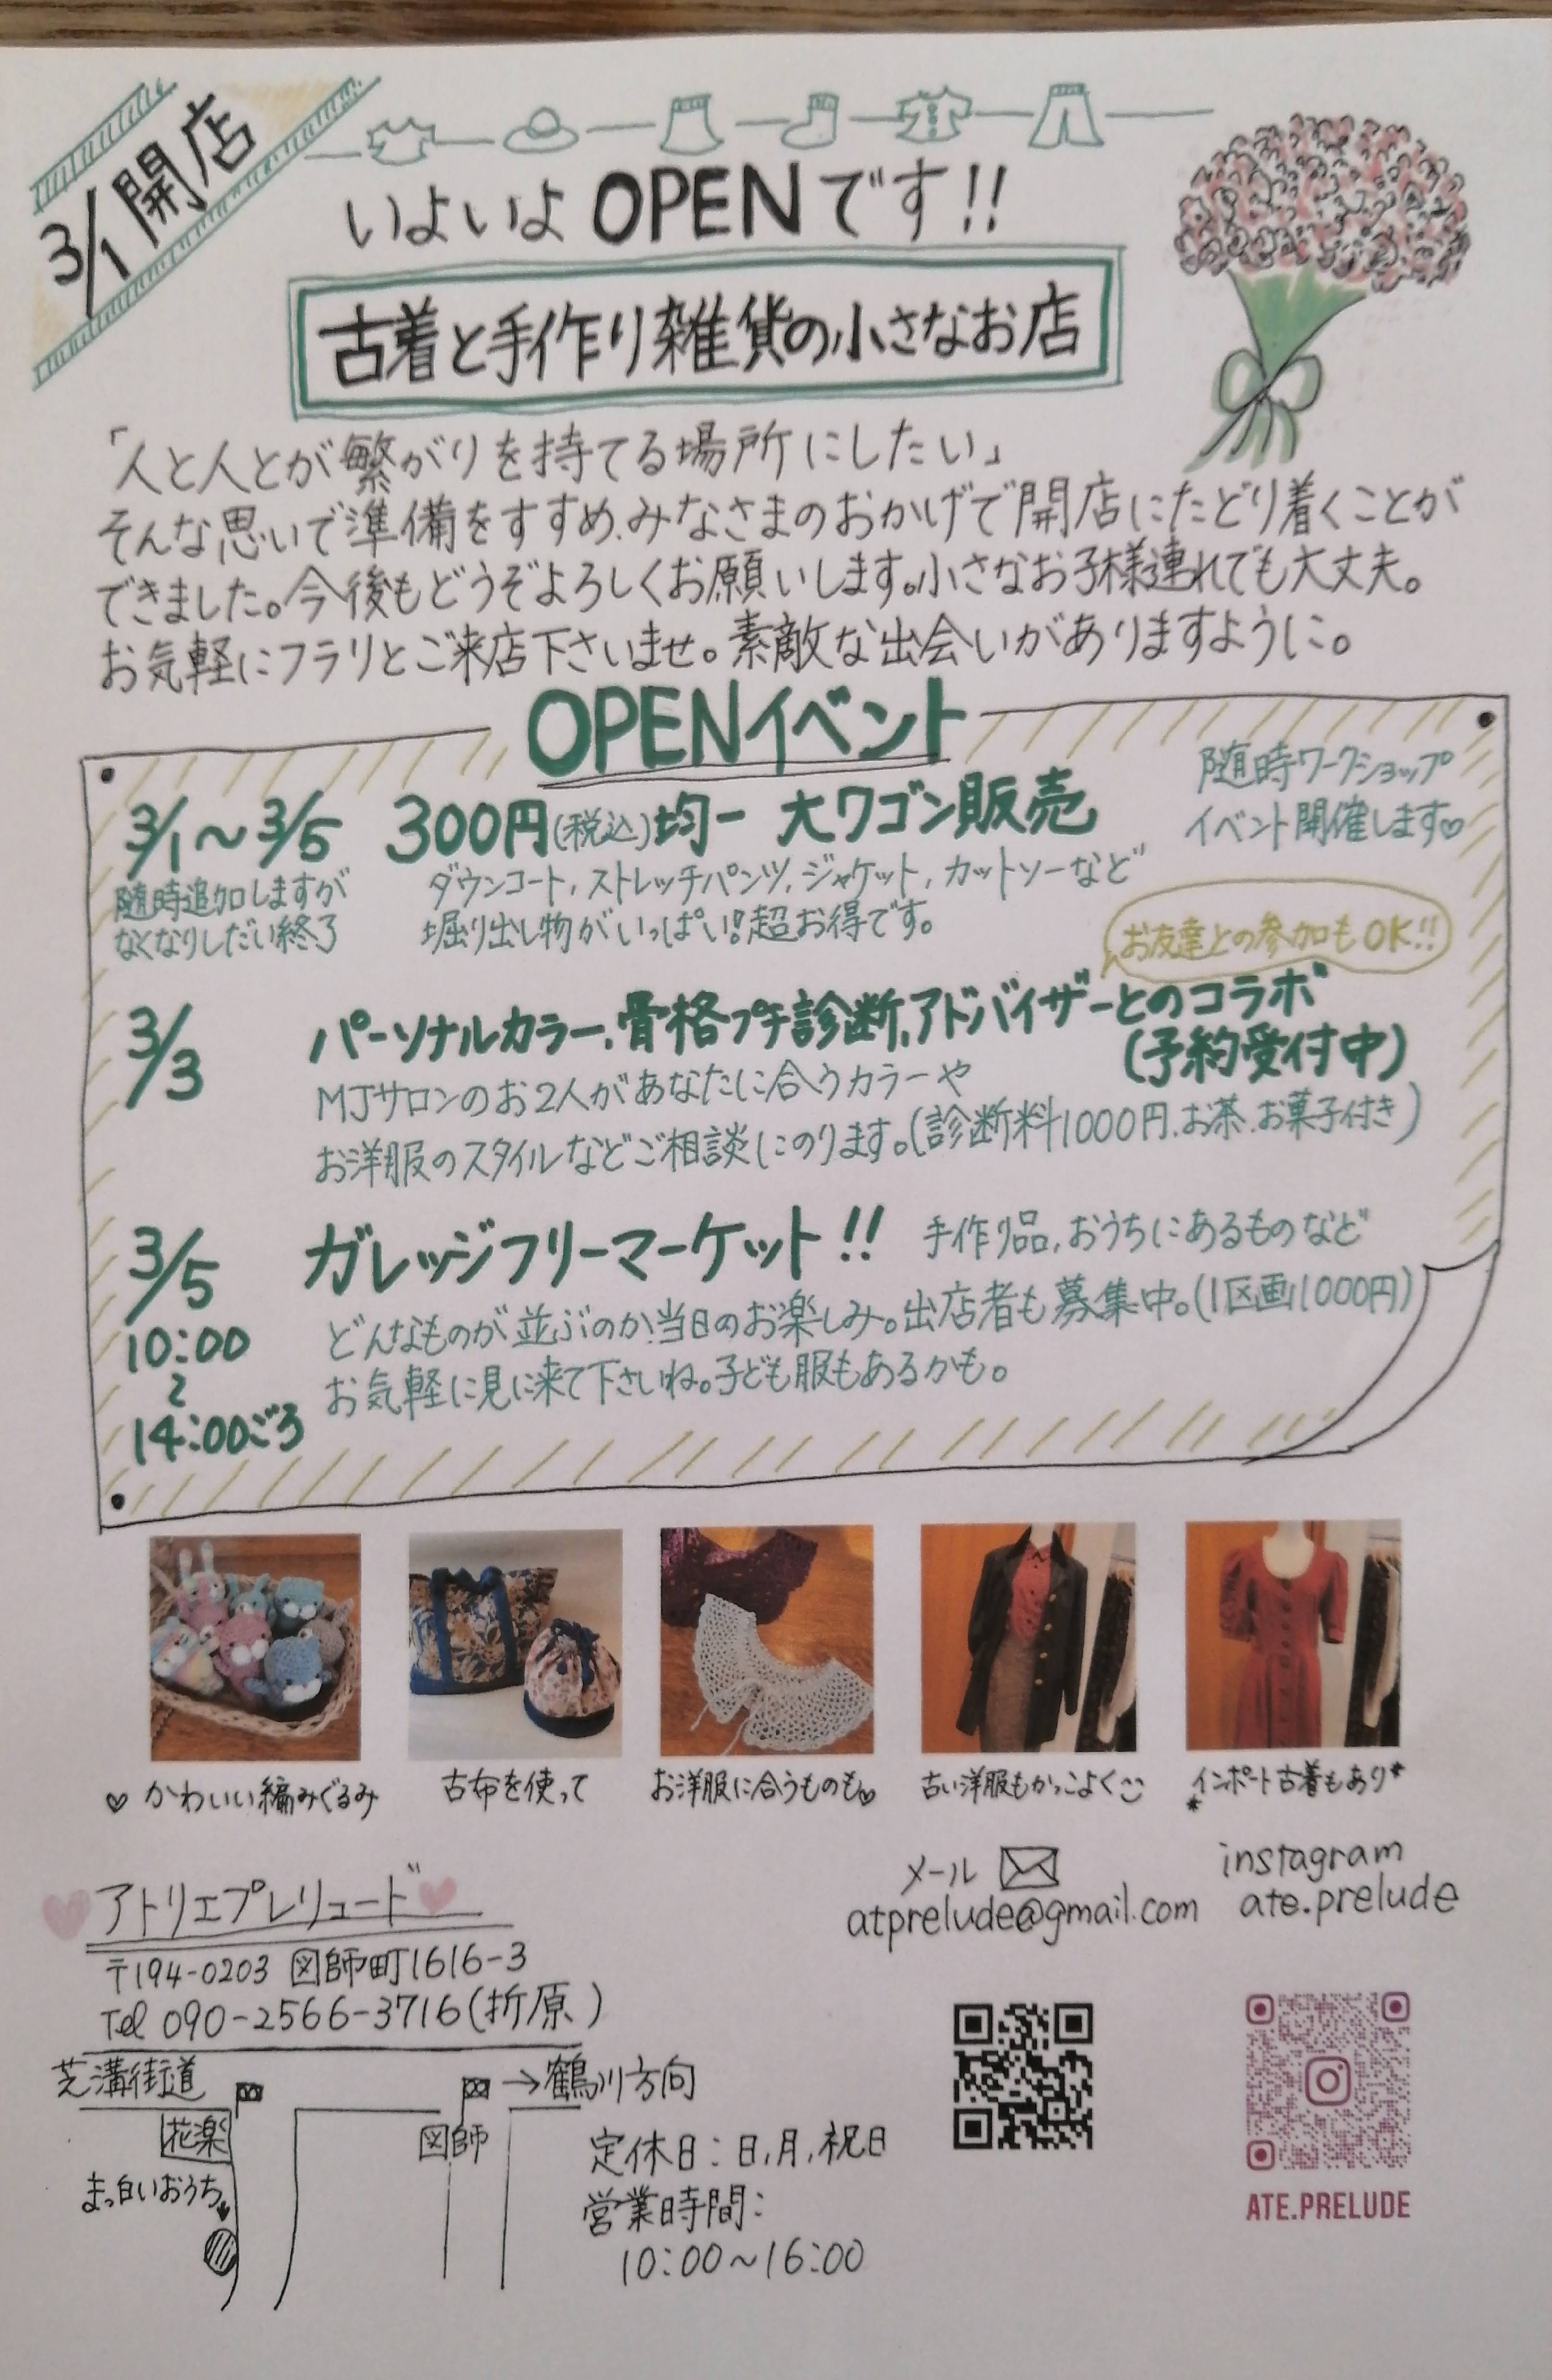 3/1開店
いよいよOPENです!!
古着と手作り雑貨の小さなお店
「人と人とが繋がりを持てる場所にしたい」
そんな思いで準備をすすめ、みなさまのおかげで開店にたどり着くことが
できました。今後もどうぞよろしくお願いします。小さなお子様連れでも大丈夫。
お気軽にフラリとご来店下さいませ。素敵な出会いがありますように。
OPENイベント
随時ワークショップ
イベント開催します♡
3/1〜3/5 300円(税込)均一 大ワゴン販売
随時追加しますが
なくなりしだい終了
ダウンコート,ストレッチパンツ,ジャケット,カットソーなど
堀り出し物がいっぱい!超お得です。
お友達との参加もOK!!
3/3 パーソナルカラー、骨格プチ診断、アドバイザーとのコラボ
(予約受付中)
MJサロンのお2人があなたに合うカラーや
お洋服のスタイルなどご相談にのります。(診断料1000円、お茶、お菓子付き)
3/5 ガレッジフリーマーケット!! 手作り品、おうちにあるものなど
10:00
〜
14:00ごろ
どんなものが並ぶのか当日のお楽しみ。出店者も募集中。(1区画1000円)
お気軽に見に来て下さいね。子ども服もあるかも。
♡かわいい編みぐるみ
古布を使って
お洋服に合うものも♡
古い洋服もかっこよく
*インポート古着もあり*
アトリエプレリュード
〒194-0203 図師町1616-3
Tel 090-2566-3716(折原)
メール
atprelude@gmail.com
instagram
ate.prelude
ATE.PRELUDE
芝溝街道
→鶴川方向
花楽
図師
まっ白いおうち
定休日:日,月,祝日
営業時間:
10:00〜16:00